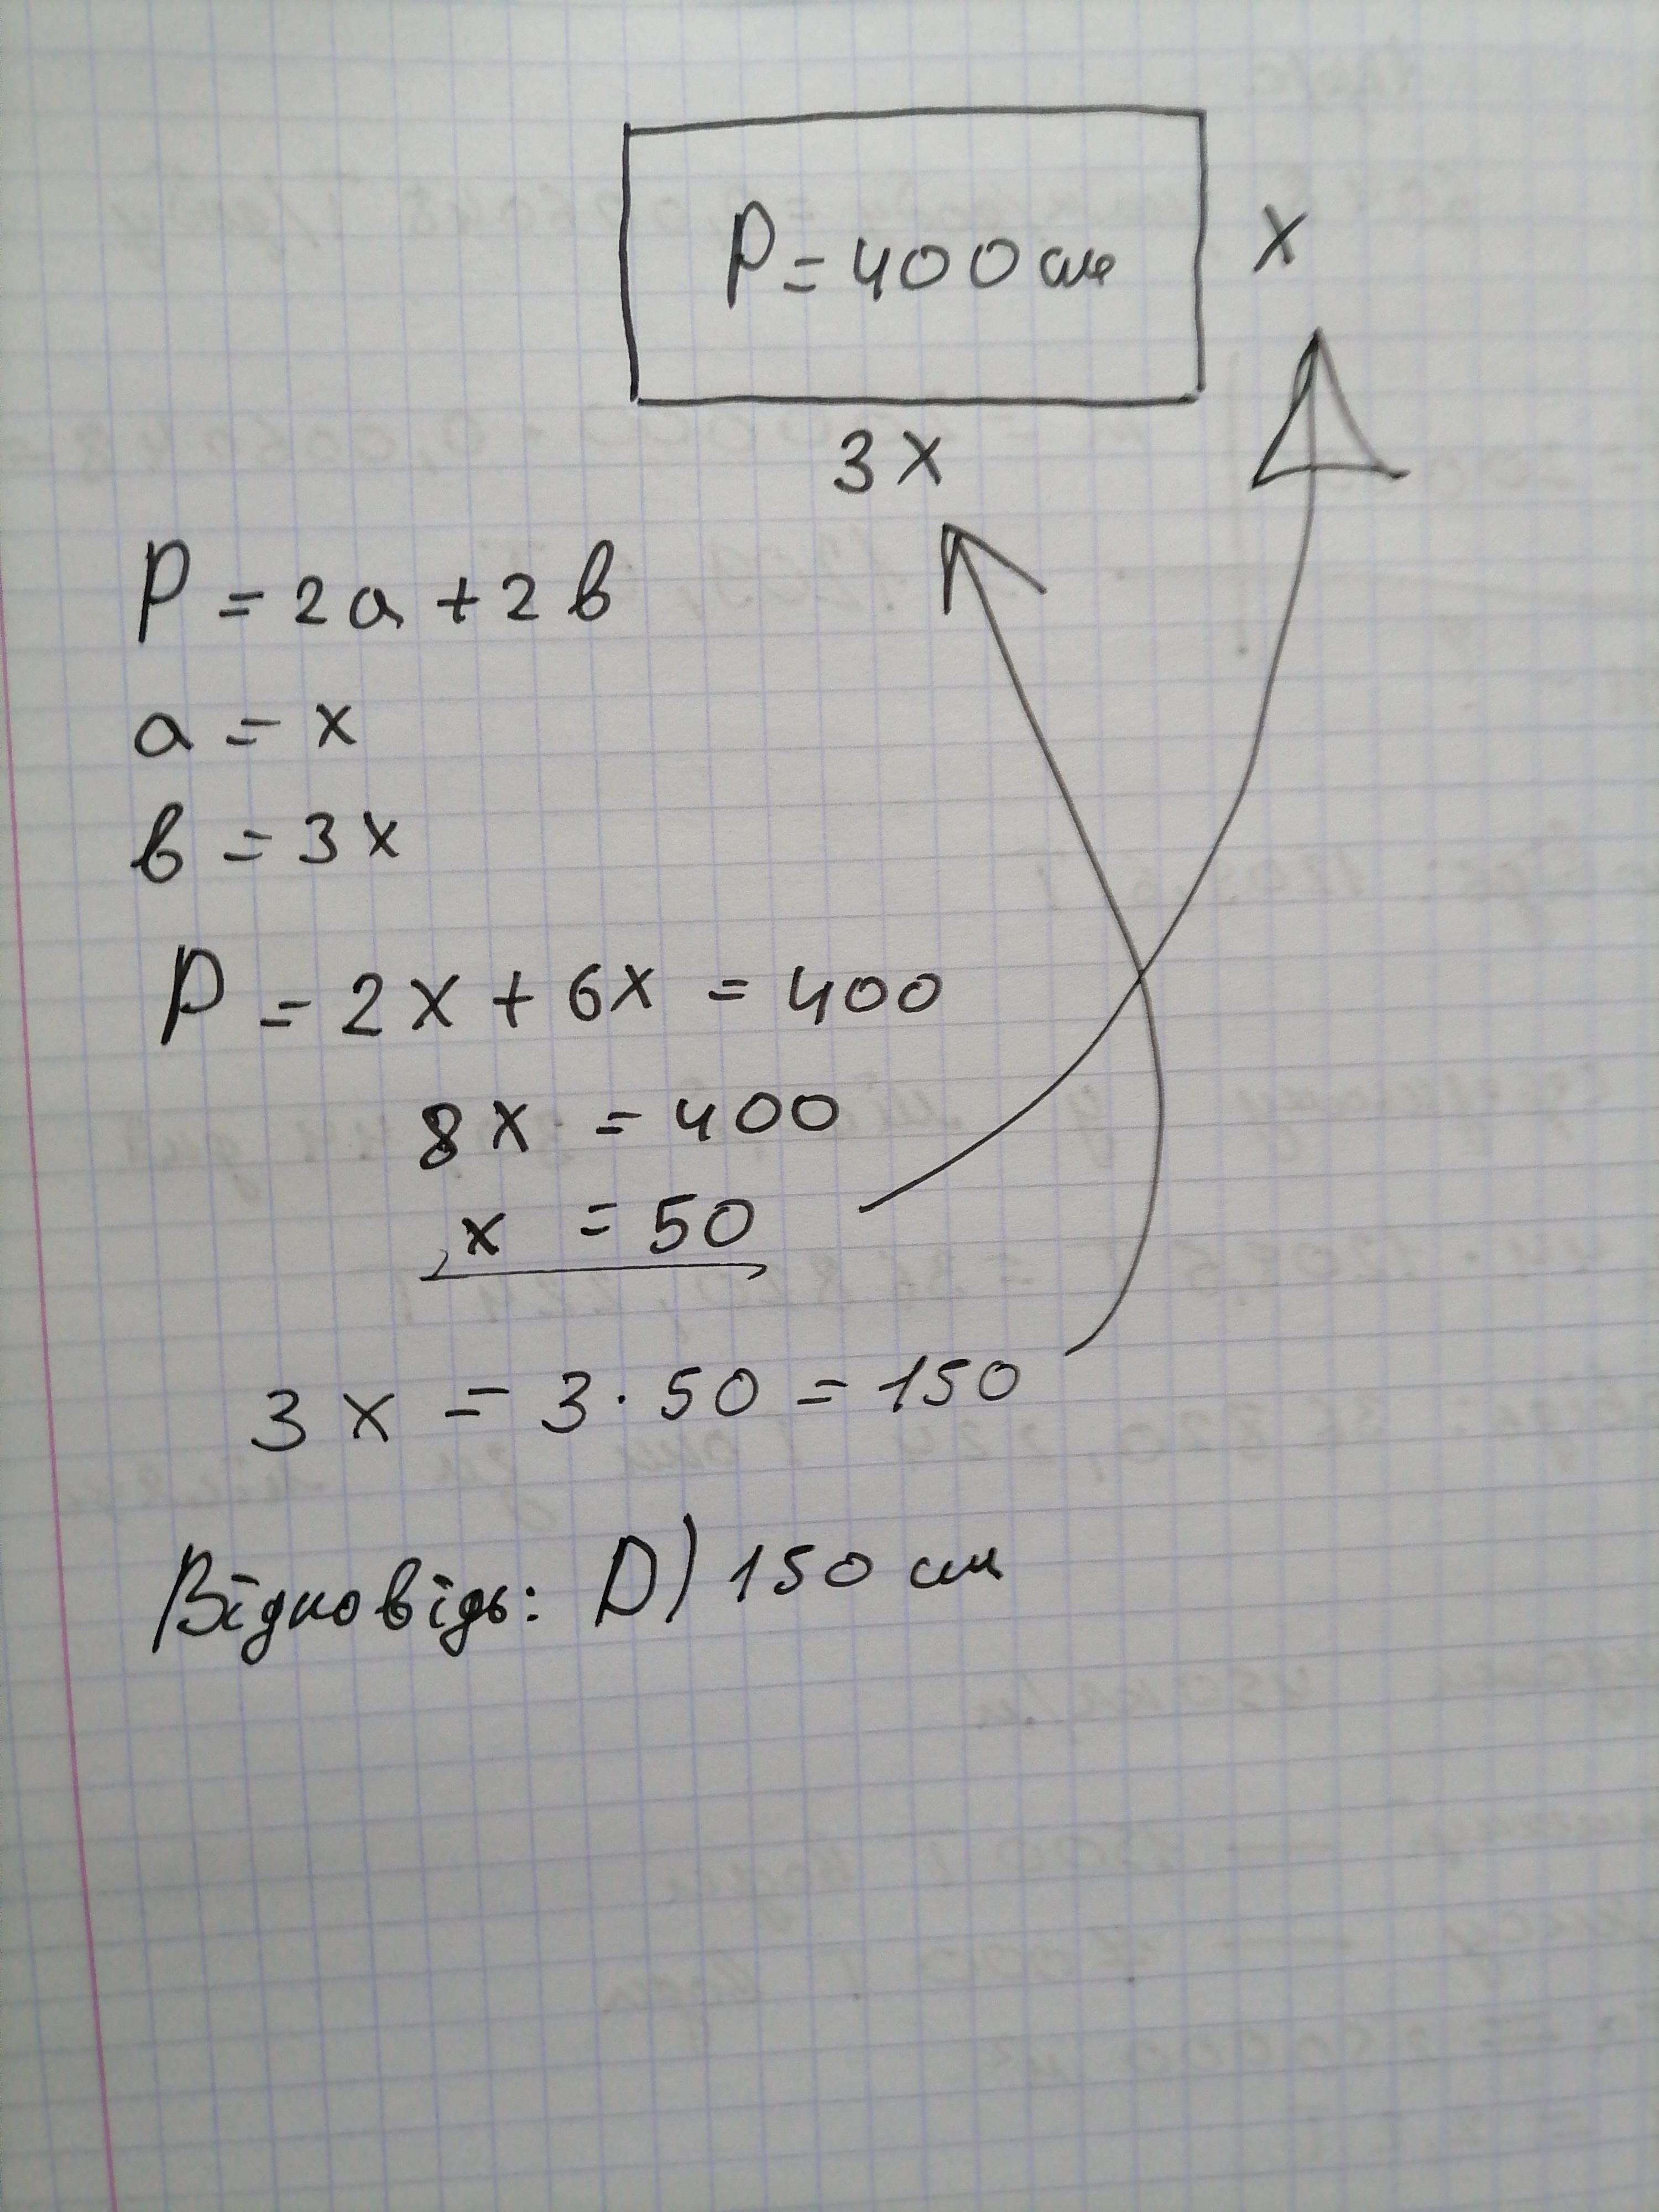 P = 400 см
x
3x
P = 2a + 2b
a = x
b = 3x
P = 2x + 6x = 400
8x = 400
x = 50
3x = 3 · 50 = 150
Відповідь: D) 150 см